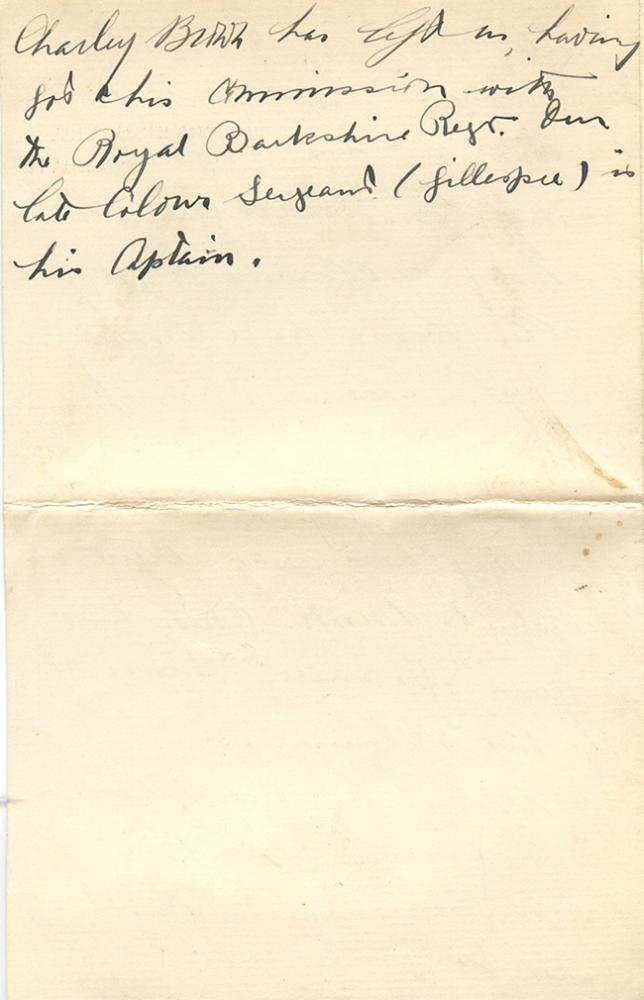 Charley has left us, having
got his Commission with
the Royal Barkshire Regt. Our
late Colour Sergeant (Gillespie) is
his Captain.